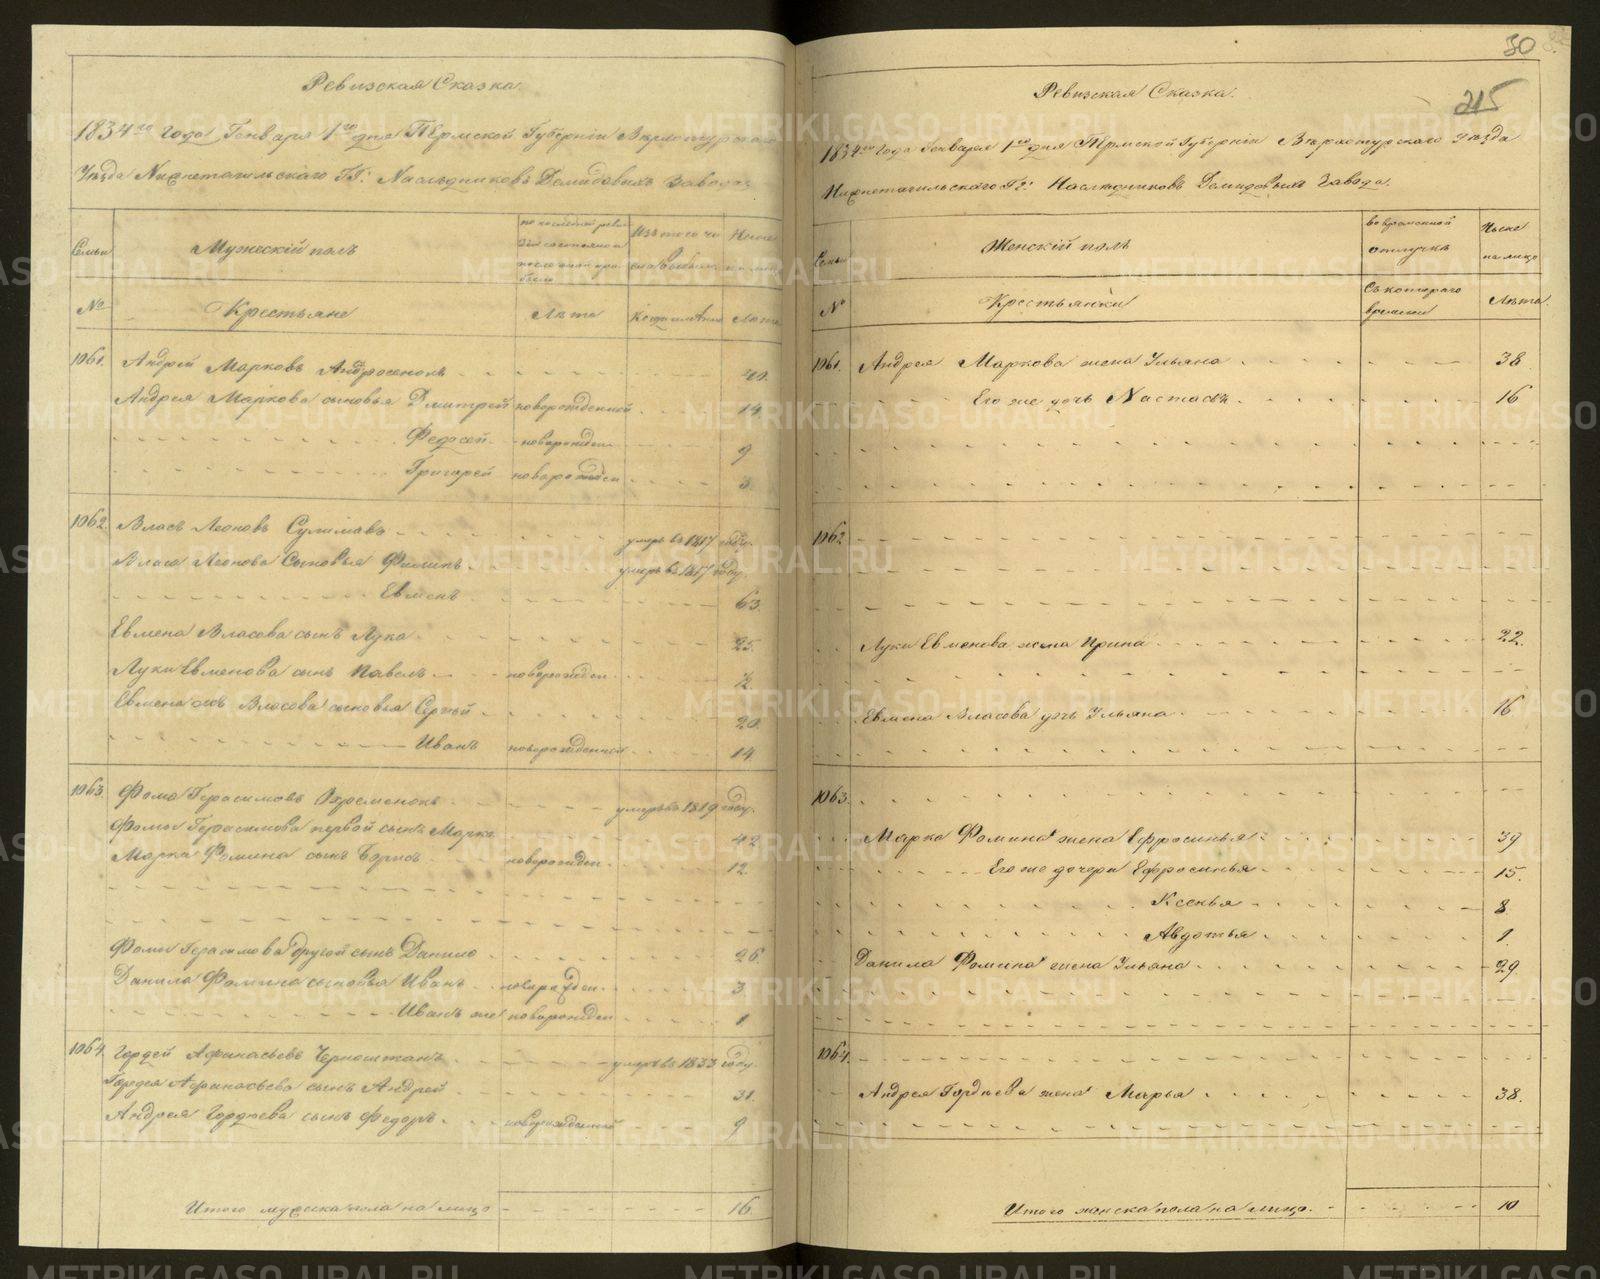 30
215
Ревизская Сказка.
1834го Года Генваря 1го дня Пермской Губернiи Верхотурскаго
Уѣзда Нижнетагильскаго ГГ: Наслѣдниковъ Демидовыхъ Завода
Семьи
Мужескiй полъ
Изъ того числа выбыло
Ныне на лицо
№
Крестьяне
Лѣта
Когда именно
Лѣта
1061. Андрей Марковъ
Андрея Маркова сыновья Дмитрей новорожденной 14
Федосей новорожден 9
Григорей новорожден 3.
1062. Власъ Леоновъ умеръ въ 1817 году.
Власа Леонова Сыновья Филипъ умеръ въ 1817 году.
Евменъ 63.
Евмена Власова сынъ Лука 25.
Луки Евменова сынъ Павелъ новорожден
Евмена же Власова сыновья Сергѣй 20.
Иванъ новорожденной 14.
1063. Фома Герасимовъ умеръ въ 1819 году.
Фомы Герасимова первой сынъ Марко 42
Марка Фомина сынъ Борисъ новорожден. 12.
Фомы Герасимова другой сынъ Данило 26.
Данила Фомина сыновья Иванъ новорожден. 3
Иванъ же новорожден 1
1064. Гордей Афанасьевъ умеръ въ 1833 году.
Гордея Афанасьева сынъ Андрей 31.
Андрея Гордѣева сынъ Федоръ новорожденной 9
Итого мужска пола на лицо 16.
Ревизская Сказка.
1834го Года Генваря 1го дня Пермской Губернiи Верхотурскаго Уѣзда
Нижнетагильскаго ГГ: Наслѣдниковъ Демидовыхъ Завода.
Семьи
Женскiй полъ
во временной отлучкѣ
Ныне на лицо
№
Крестьянки
Съ котораго времени
Лѣта.
1061. Андрея Маркова жена Ульяна 38
Его же дочь Настасья 16
1062
Луки Евменова жена Ирина 22.
Евмена Власова дочь Ульяна 16
1063.
Марка Фомина жена Ефросинья 39
Его же дочери Ефросинья 15.
Ксенья 8
Авдотья 1.
Данила Фомина жена Ульяна 29
1064.
Андрея Гордѣева жена Марья 38.
Итого женска пола на лицо. 10
METRIKI.GASO-URAL.RU